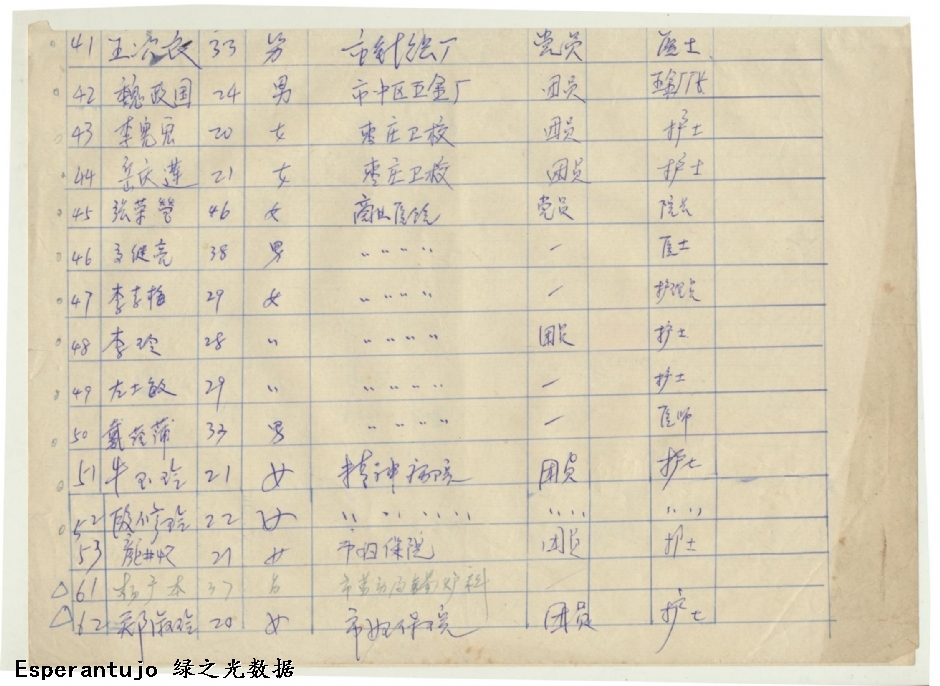 41 王 33 男 市针织厂 党员 医士
42 魏政国 24 男 市中区五金厂 团员 厂长
43 李宪宏 20 女 枣庄卫校 团员 护士
44 岳庆莲 21 女 枣庄卫校 团员 护士
45 张荣 46 女 商业医院 党员 院长
46 继亮 38 男 〃 〃 〃 〃 — 医士
47 李梅 29 女 〃 〃 〃 〃 — 护理员
48 李玲 28 〃 〃 〃 〃 〃 团员 护士
49 左士敏 29 〃 〃 〃 〃 〃 — 护士
50 戴蒲 33 男 〃 〃 〃 〃 — 医师
51 牛玉玲 21 女 精神病院 团员 护士
52 段修玲 22 女 〃 〃 〃 〃 〃 〃 〃 〃
53 21 女 市妇保院 团员 护士
△ 61 杨于 37 男 市 科
△ 62 郑淑玲 20 女 市妇保院 团员 护士
Esperantujo 绿之光数据